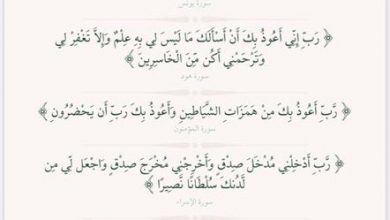 سورة يونس
﴿ رَبِّ إِنِّي أَعُوذُ بِكَ أَنْ أَسْأَلَكَ مَا لَيْسَ لِي بِهِ عِلْمٌ وَإِلَّا تَغْفِرْ لِي
وَتَرْحَمْنِي أَكُن مِّنَ الْخَاسِرِينَ ﴾
سورة هود
﴿ رَّبِّ أَعُوذُ بِكَ مِنْ هَمَزَاتِ الشَّيَاطِينِ وَأَعُوذُ بِكَ رَبِّ أَن يَحْضُرُونِ ﴾
سورة المؤمنون
﴿ رَّبِّ أَدْخِلْنِي مُدْخَلَ صِدْقٍ وَأَخْرِجْنِي مُخْرَجَ صِدْقٍ وَاجْعَل لِّي مِن
لَّدُنكَ سُلْطَانًا نَّصِيرًا ﴾
سورة الإسراء